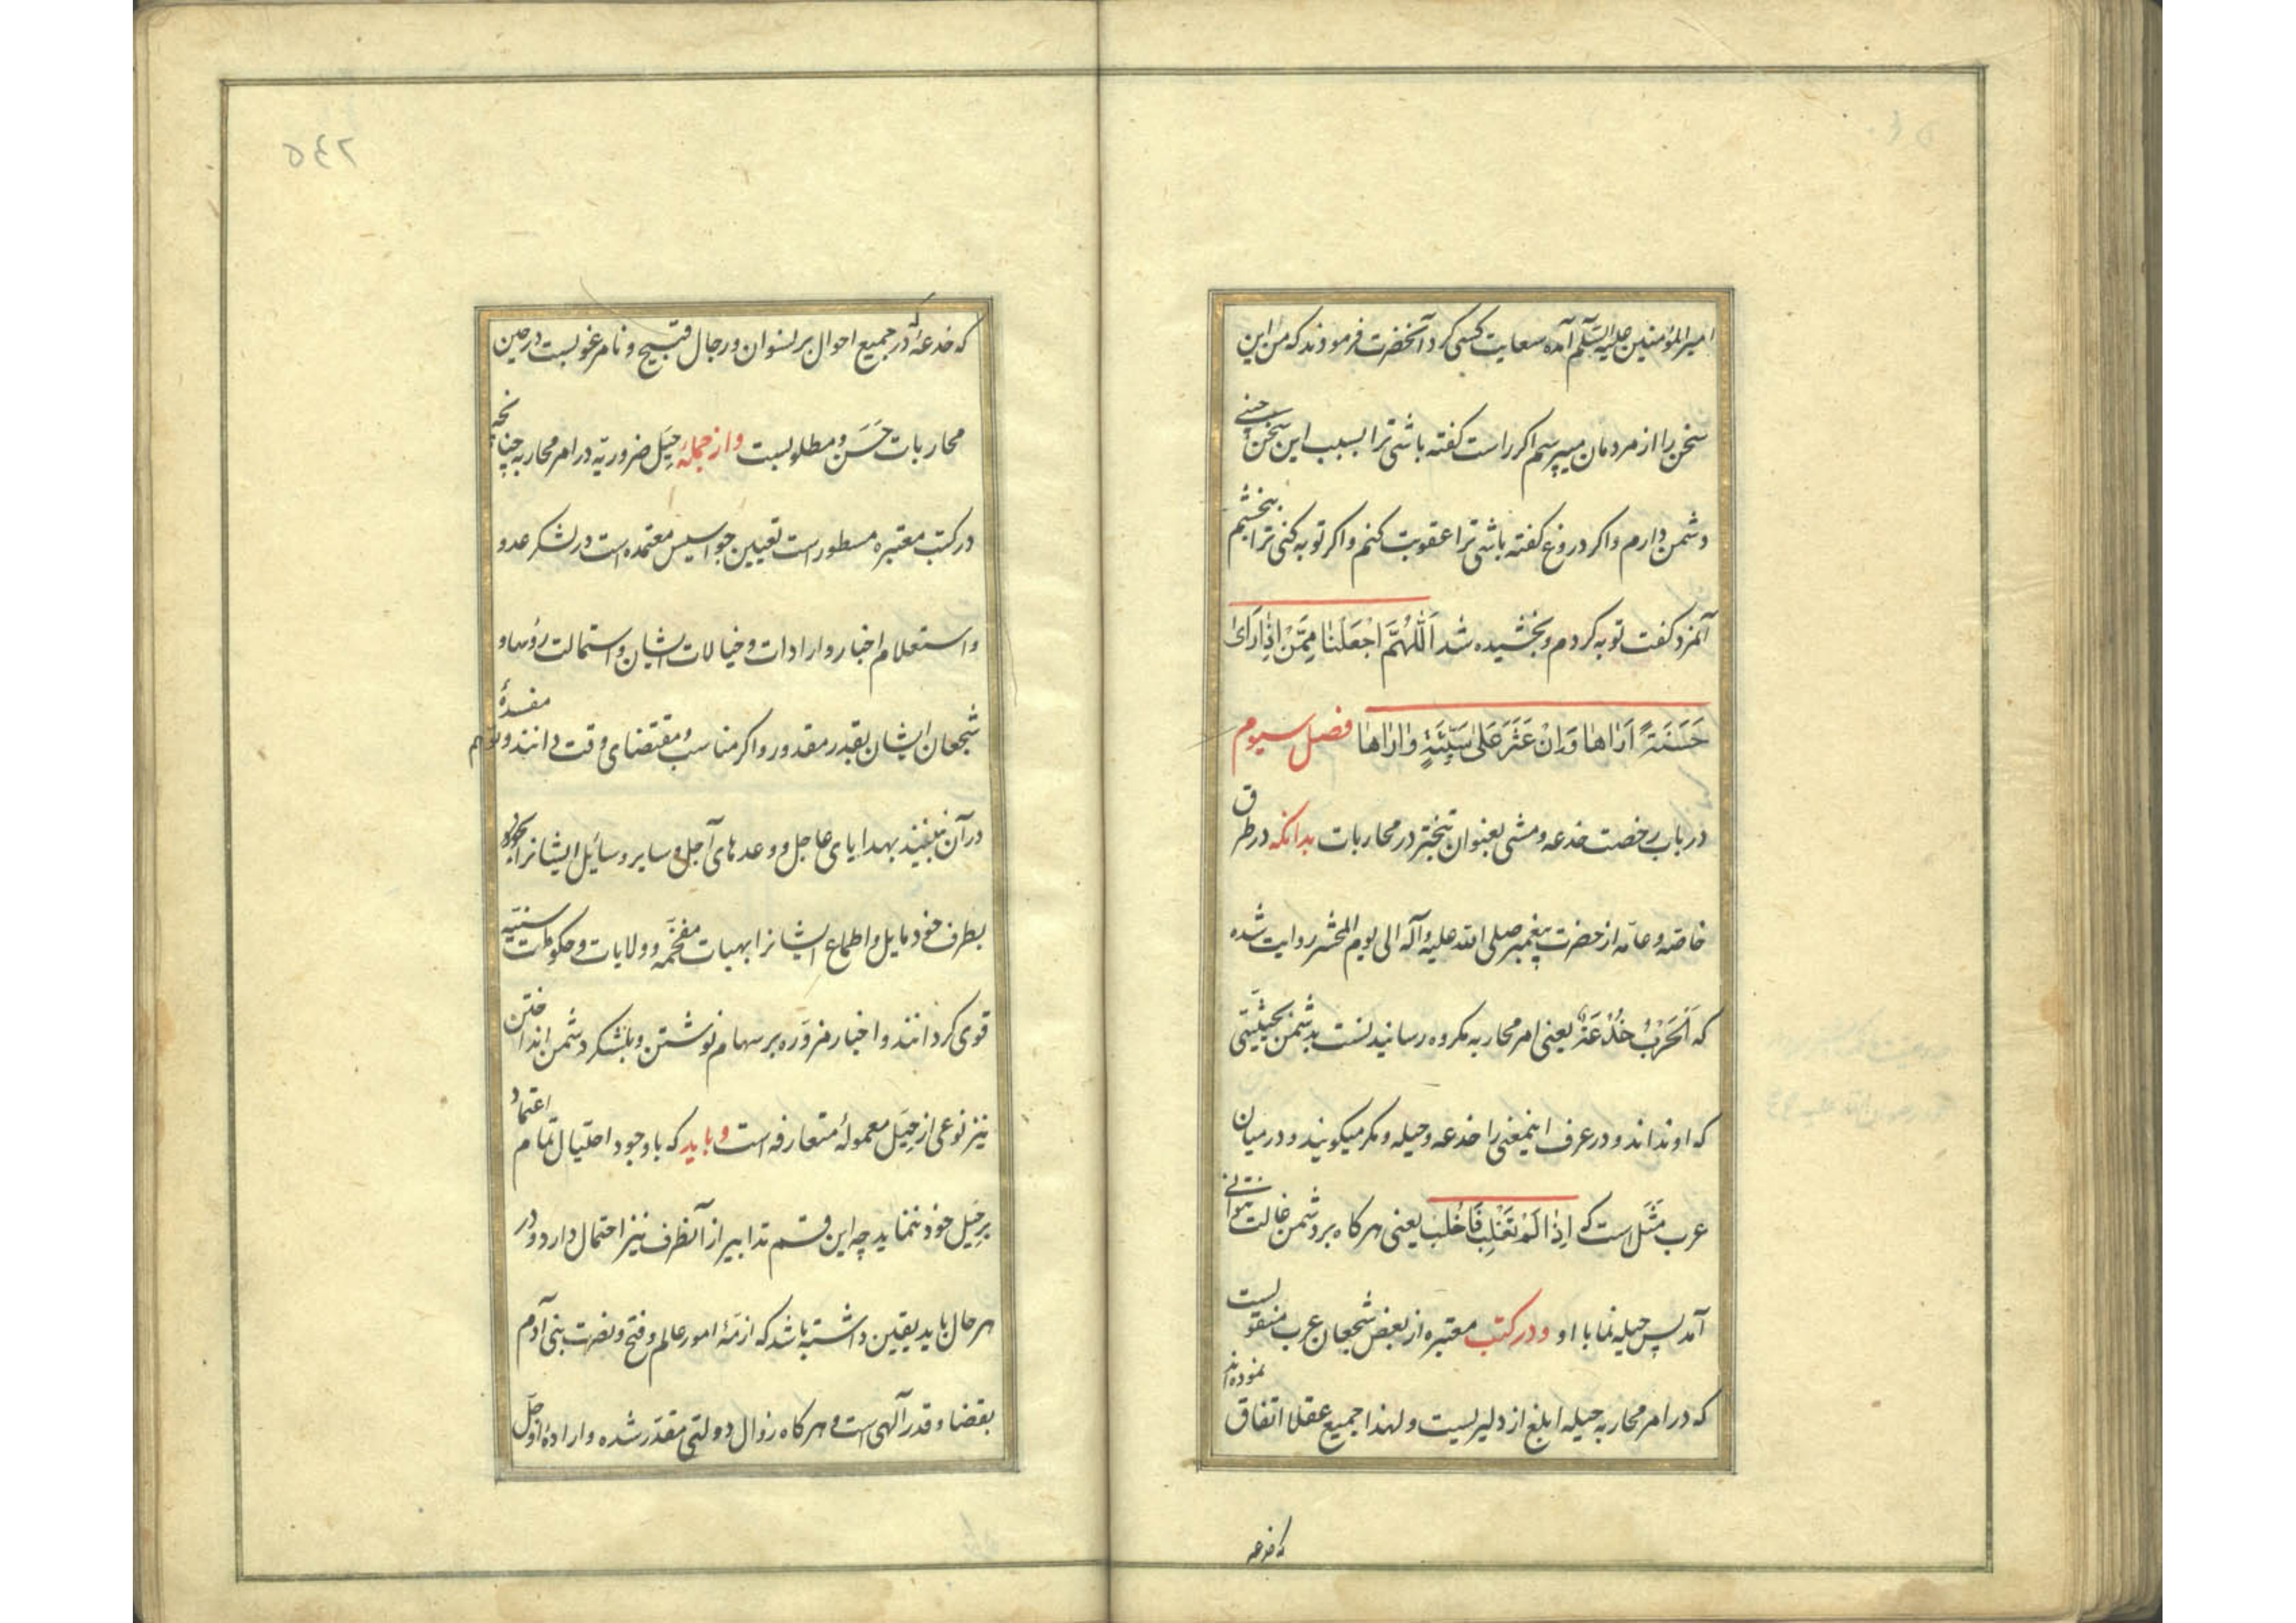 امیرالمؤمنین علیه السّلم آمده سعایت کسی کرد آنحضرت فرمودند که من این
سخن را از مردمان میپرسم اکر راست کفته باشی ترا بسبب این سخن چینی
دشمن دارم واکر دروغ کفته باشی ترا عقوبت کنم واکر توبه کنی ترا ببخشیم
آنمرد کفت توبه کردم وبخشیده شد اَللّٰهُمَّ اجْعَلْنٰا مِمَّنْ اِذٰا رَایٰ
حَسَنَةً اَرٰاهٰا وَاِنْ عَثَرَ عَلیٰ سَیِّئَةٍ وٰارٰاهٰا فصل سیوم
در باب رخصت خدعه ومشی بعنوان تبختر در محاربات بدانکه در طرق
خاصّه وعامّه از حضرت پیغمبر صلی الله علیه وآله الی یوم المحشر روایت شده
که اَلْحَرْبُ خُدْعَةٌ یعنی امر محاربه مکروه رسانیدنست بدشمن بحیثیّتی
که او نداند و در عرف اینمعنی را خدعه وحیله ومکر میکویند و در میان
عرب مَثَل است که اِذٰا لَمْ تَغْلِبْ فَاخْلُبْ یعنی هرکاه بر دشمن غالب نتوانی
آمد پس حیله نما با او ودر کتب معتبره از بعض شجعان عرب منقولست
که در امر محاربه حیله ابلغ از دلیریست ولهذا جمیع عقلا اتفاق نموده‌اند
که خدعه
٥٤٢
که خدعه در جمیع احوال بر نسوان ورجال قبیح ونامرغوبست در حین
محاربات حَسَن ومطلوبست واز جملهٔ حِیَل ضروریّه در امر محاربه چنانچه
در کتب معتبره مسطور است تعیین جواسیس معتمده است در لشکر عدو
واستعلام اخبار وارادات وخیالات ایشان واستمالت رؤسا و
شجعان ایشان بقدر مقدور واکر مناسب ومقتضای وقت دانند وتوهم مفسدهٔ
در آن نبینند بهدایای عاجل ووعدهای آجل وسایر وسائل ایشانرا
بطرف خود مایل واطماع ایشانرا بهبات مفخّمه وولایات وحکومات سنیّه
قوی کردانند واخبار مزوّره بر سهام نوشتن وبلشکر دشمن انداختن
نیز نوعی از حِیَل معمولهٔ متعارفه است وباید که با وجود احتیال تمام اعتماد
بر حِیَل خود ننماید چه این قسم تدابیر از آنطرف نیز احتمال دارد ودر
هر حال باید یقین داشته باشد که ازمّهٔ امور عالم وفتح ونصرت بنی آدم
بقضا وقدر آلهی است وهرکاه زوال دولتی مقدّر شده وارادهٔ او جلّ